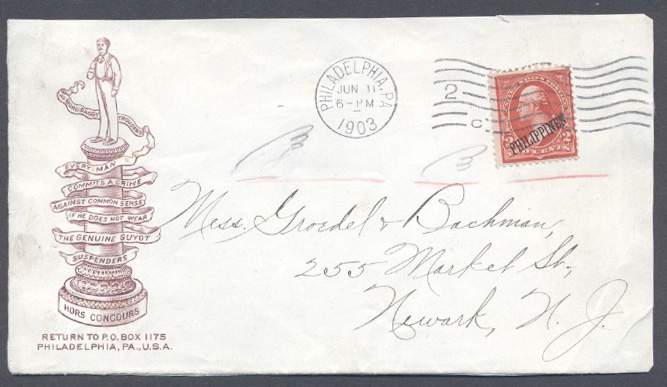 PHILADELPHIA, PA.
JUN 11
6-PM
1903
2
C
PHILIPPINES
EVERY MAN
COMMITS A CRIME
AGAINST COMMON SENSE
IF HE DOES NOT WEAR
THE GENUINE GUYOT
SUSPENDERS
HORS CONCOURS
RETURN TO P.O. BOX 1175
PHILADELPHIA, PA., U.S.A.
Mess. Groedel & Bachman,
255 Market St.,
Newark, N. J.